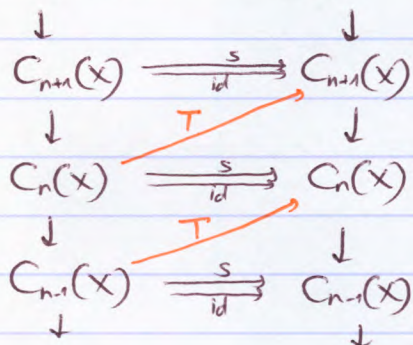 C_{n+1}(X) S id C_{n+1}(X)
T
C_n(X) S id C_n(X)
T
C_{n-1}(X) S id C_{n-1}(X)